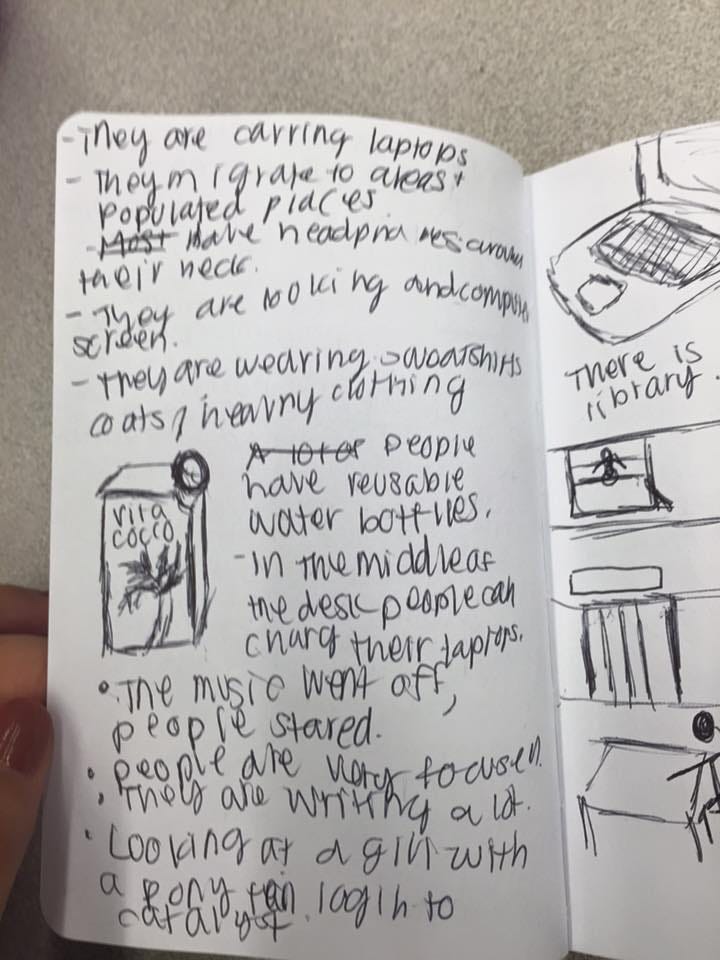 -They are carring laptops
- They migrate to areas +
populated places.
-Most have headphones around
their neck.
- They are looking and computer
screen.
- They are wearing sweatshirts
coats, heavny clothing
A lot of people
have reusable
water bottles.
-In the middle of
the desk people can
charg their laptops.
vita
cocco
• The music went off,
people stared.
• people are very focused.
• They are writing a lot.
• Looking at a girl with
a pony tail login to
catalyst
There is
library.